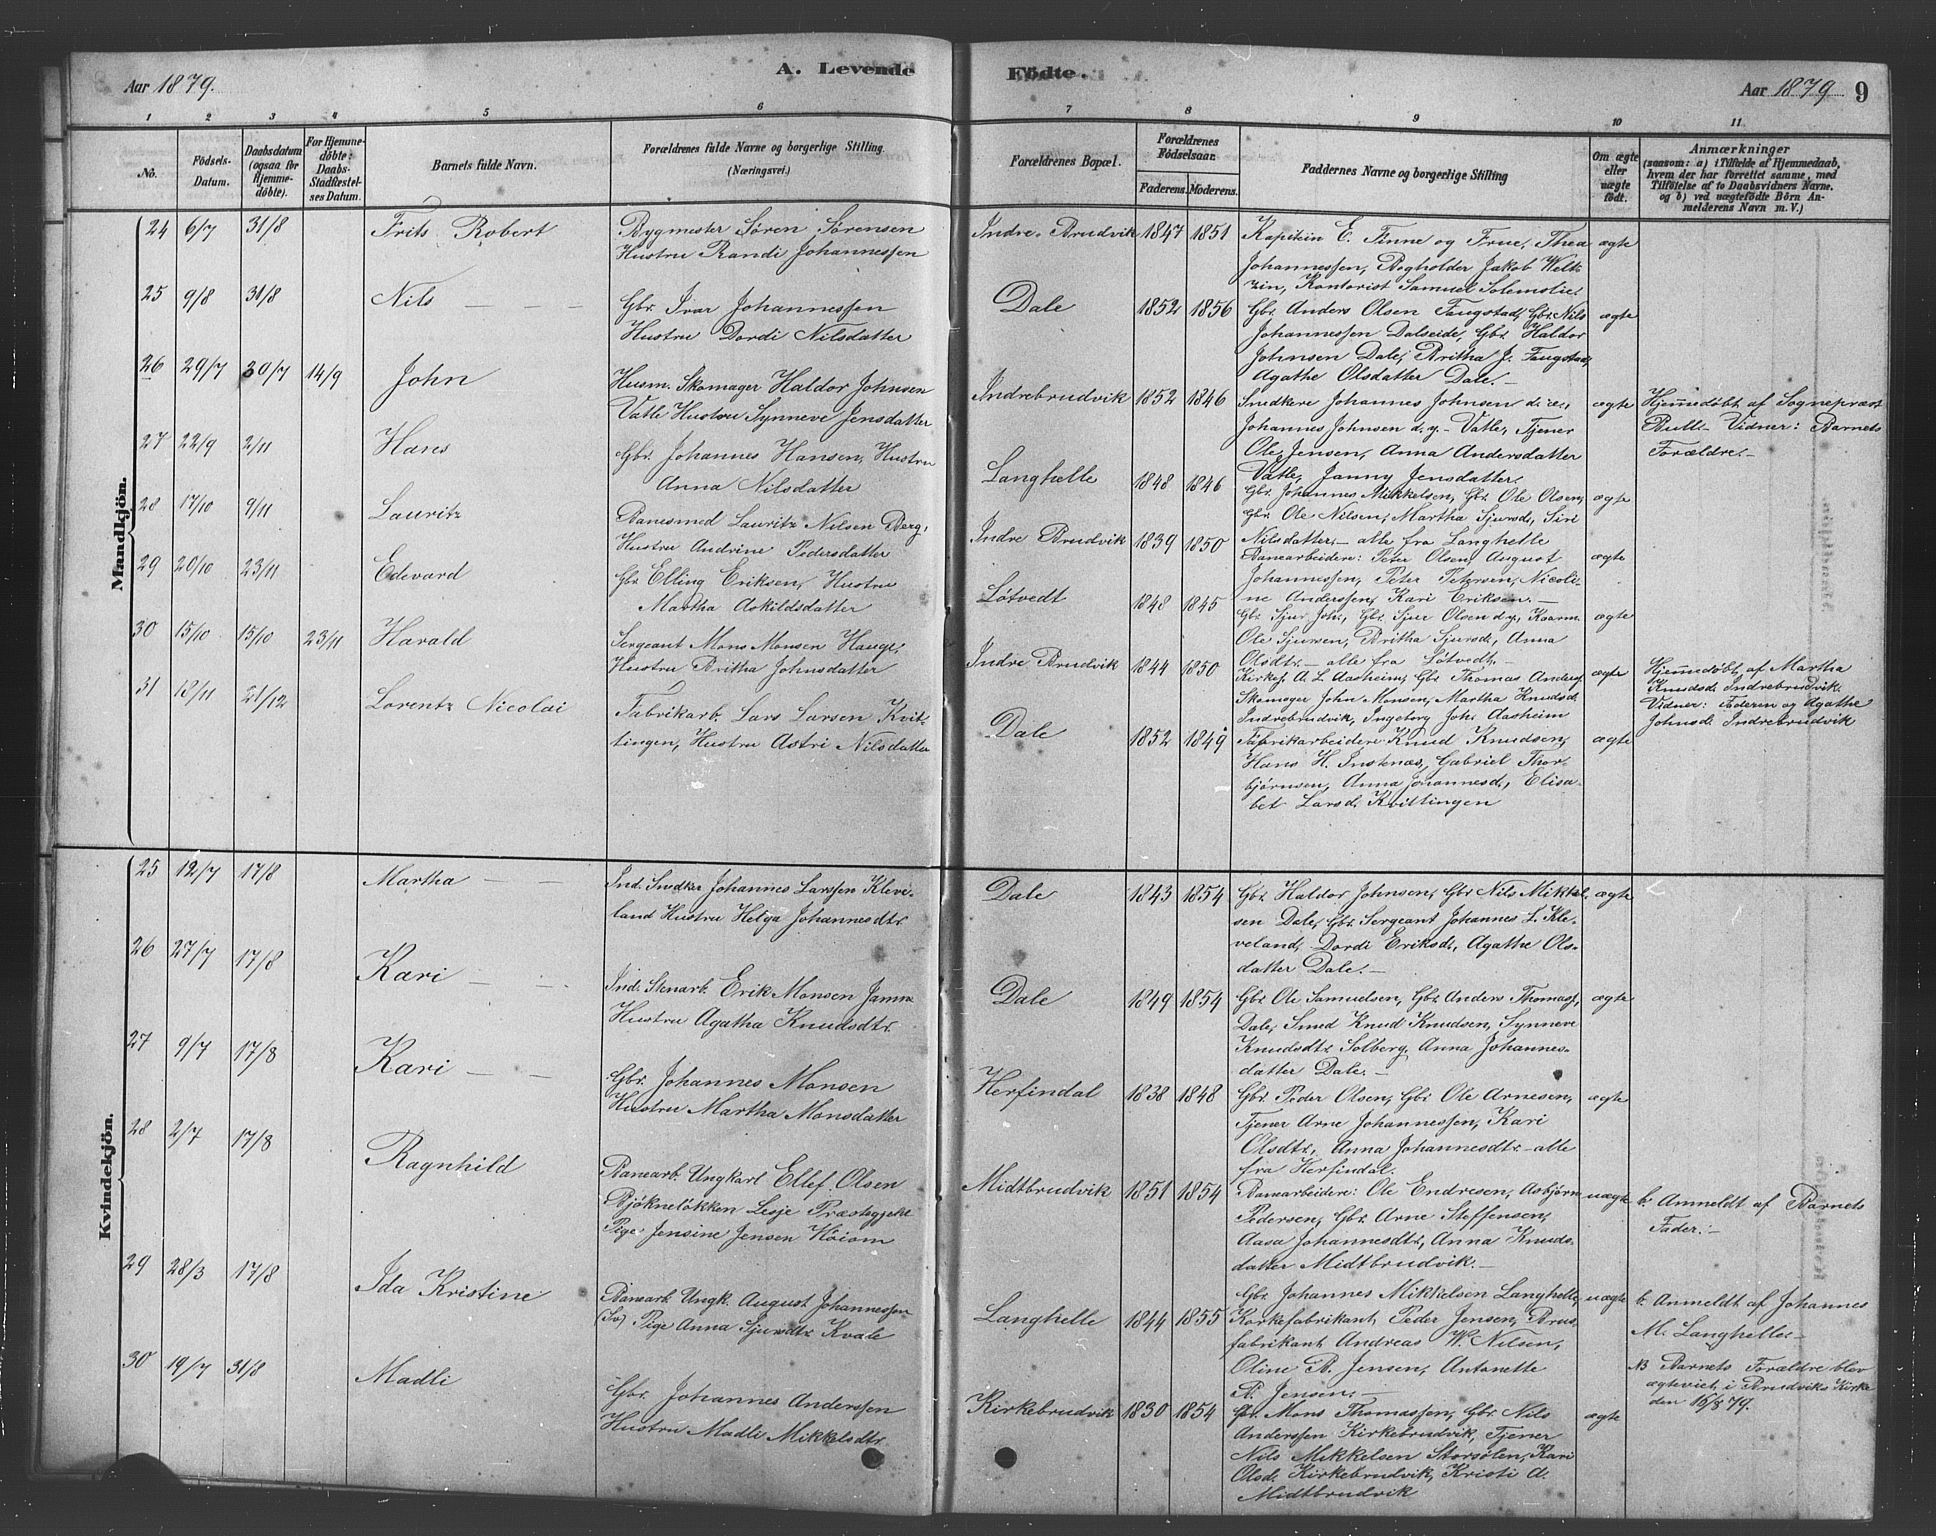 Aar 1879.
A. Levende
Födte.
Aar 1879
9
1 2 3 4 5 6 7 8 9 10 11
No.
Födsels-
Datum.
Daabsdatum
(ogsaa for
Hjemme-
döbte).
For Hjemme-
döbte:
Daabs-
Stadfæstel-
ses Datum.
Barnets fulde Navn.
Forældrenes fulde Navne og borgerlige Stilling
(Næringsvei.)
Forældrenes Bopæl.
Forældrenes
Födselsaar.
Faderens. Moderens.
Faddernes Navne og borgerlige Stilling
Om ægte
eller
uægte
födt.
Anmærkninger
(saasom: a) i Tilfælde af Hjemmedaab,
hvem der har forrettet samme, med
Tilföielse af to Daabsvidners Navne.
og b) ved uægtefödte Börn An-
melderens Navn m. V.)
Mandkjön.
24 6/7 31/8 Frits Robert
Bygmester Sören Sörensen
Hustru Randi Johannessen
Indre Brudvik 1847 1851
Kaptein E. Finne og Frue, Thea
Johannessen, Bogholder Jakob Welt-
zin, Kontorist Samuel Solemslie.
ægte
25 9/8 31/8 Nils
Gbr. Ivar Johannessen
Hustru Dordi Nilsdatter
Dale 1852 1856
Gbr. Anders Olsen Faugstad, Gbr. Nils
Johannessen Dalseide, Gbr. Haldor
Johnsen Dale, Britha J. Faugstad,
Agathe Olsdatter Dale.
ægte
26 29/7 30/7 14/9 John
Husm. Skomager Haldor Johnsen
Vatle Hustru Synneve Jensdatter
Indrebrudvik 1852 1846
Snedkere Johannes Johnsen d. æ.,
Johannes Johnsen d. y. Vatle, Tjener
Ole Jensen, Anna Andersdatter
Vatle, Janny Jensdatter.
ægte
Hjemmedöbt af Sognepræst
Bull. Vidner: Barnets
Forældre.
27 22/9 2/11 Hans
Gbr. Johannes Hansen, Hustru
Anna Nilsdatter
Langhelle 1848 1846
Gbr. Johannes Mikkelsen, Gbr. Ole Olsen,
Gbr. Ole Nilsen, Martha Sjursd., Siri
Nilsdatter, alle fra Langhelle
ægte
28 17/10 9/11 Lauritz
Banesmed Lauritz Nilsen Berg,
Hustru Andrine Pedersdatter
Indre Brudvik 1839 1850
Banearbeidere: Peter Olsen, August
Johannessen, Peter Petersen, Nicoli-
ne Anderssen, Kari Eriksen.
ægte
29 20/10 23/11 Edevard
Gbr. Elling Eriksen, Hustru
Martha Askildsdatter
Lötvedt 1848 1845
Gbr. Sjur Joh., Gbr. Sjur Olsen d. y.,
Ole Sjursen, Britha Sjursd., Anna
Olsdtr. alle fra Lötvedt.
ægte
30 15/10 15/10 23/11 Harald
Sergeant Mons Monsen Hauge,
Hustru Britha Johnsdatter
Indre Brudvik 1844 1850
Kirkes. A. L. Aasheim, Gbr. Thomas Anders,
Skomager John Monsen, Martha Knudsd.
Indrebrudvik, Ingeborg Joh. Aasheim
ægte
Hjemmedöbt af Martha
Knudsd. Indrebrudvik.
Vidner: Faderen og Agathe
Johnsd. Indrebrudvik
31 13/11 21/12 Lorentz Nicolai
Fabrikarb. Lars Larsen Kvit-
tingen, Hustru Astri Nilsdatter
Dale 1852 1849
Fabrikarbeidere Knud Knudsen,
Hans H. Instenæs, Gabriel Thor-
björnsen, Anna Johannesd., Elisa-
bet Larsd. Kvittingen
ægte
Kvindekjön.
25 12/7 17/8 Martha
Ind. Snedker Johannes Larssen Kleve-
land Hustru Helga Johannesdtr.
Dale 1843 1854
Gbr. Haldor Johnsen, Gbr. Nils Mikkel-
sen Dale, Gbr. Sergeant Johannes L. Kle-
veland, Dordi Eriksd., Agathe Ols-
datter Dale.
ægte
26 27/7 17/8 Kari
Ind. Stenarb. Erik Monsen Jamne
Hustru Agatha Knudsdtr.
Dale 1849 1854
Gbr. Ole Samuelsen, Gbr. Anders Thomass.
Dale, Smed Knud Knudsen, Synneve
Knudsdtr. Solberg, Anna Johannes-
datter Dale.
ægte
27 9/7 17/8 Kari
Gbr. Johannes Monsen
Hustru Martha Monsdatter
Herfindal 1838 1848
Gbr. Peder Olsen, Gbr. Ole Arnesen,
Tjener Arne Johannessen, Kari
Olsdtr., Anna Johannesdtr. alle
fra Herfindal.
ægte
28 2/7 17/8 Ragnhild
Banearb. Ungkarl Ellef Olsen
Bjökneløkken Lesje Præstegjeld
Pige Jensine Jensen Höiom
Midtbrudvik 1851 1854
Banearbeidere: Ole Endresen, Asbjörn
Pedersen, Gbr. Arne Steffensen,
Aasa Johannesdtr., Anna Knuds-
datter Midtbrudvik.
uægte
b. Anmeldt af Barnets
Fader.
29 28/3 17/8 Ida Kristine
Banearb. Ungk. August Johannessen
(Sv) Pige Anna Sjursdtr. Kvale
Langhelle 1844 1855
Gbr. Johannes Mikkelsen Langhelle,
Korkefabrikant Peder Jensen, Brus-
fabrikant Andreas W. Nilsen,
Oline B. Jensen, Antonette
B. Jensen.
uægte
b. Anmeldt af Johannes
M. Langhelle.
NB Barnets Forældre blev
ægteviet i Brudviks Kirke
den 16/8 79.
30 19/7 31/8 Madli
Gbr. Johannes Anderssen
Hustru Madli Mikkelsdtr.
Kirkebrudvik 1830 1854
Gbr. Mons Thomassen, Gbr. Nils
Anderssen Kirkebrudvik, Tjener
Nils Mikkelsen Storsölen, Kari
Olsd. Kirkebrudvik, Kristi A.
Midtbrudvik
ægte